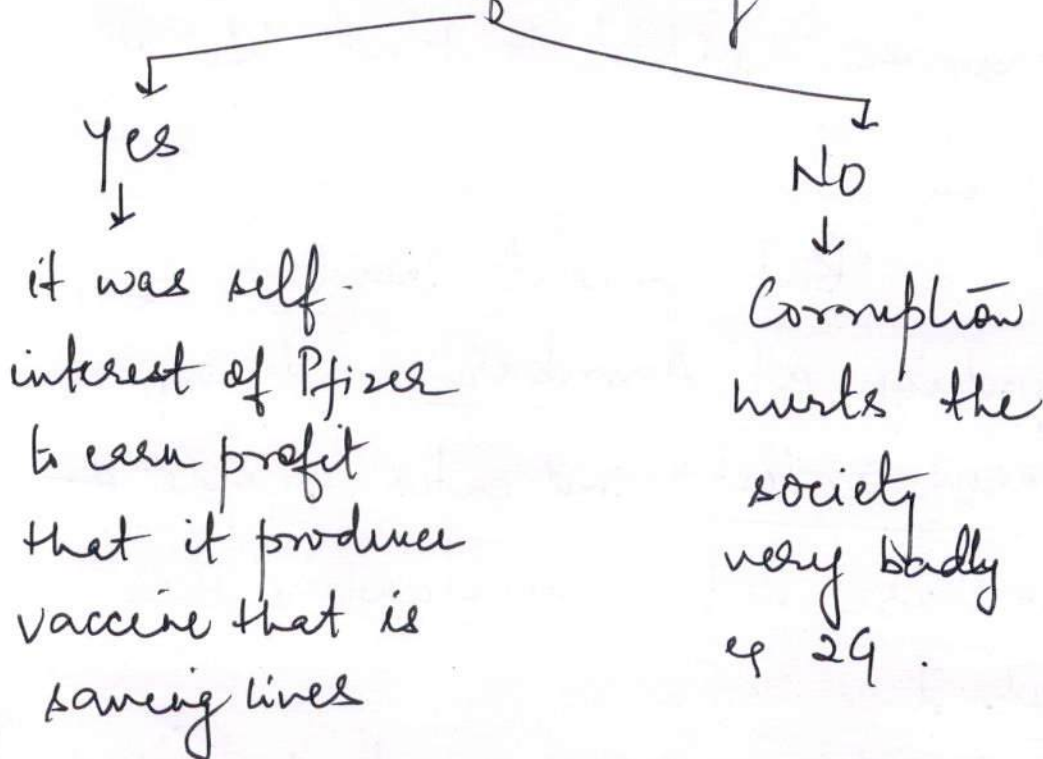 Yes
it was self-
interest of Pfizer
to earn profit
that it produce
vaccine that is
saving lives
NO
Corruption
hurts the
society
very badly
eg 2G.